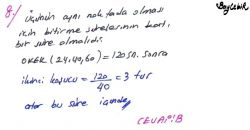 *BayCebir
8/ Üçünün aynı noktada olması
için bitirme sürelerinin katı,
bir süre olmalıdır.
OKEK (24,40,60) = 120 sn. sonra
ikinci koşucu = 120/40 = 3 tur
atar bu süre içinde
CEVAP: B